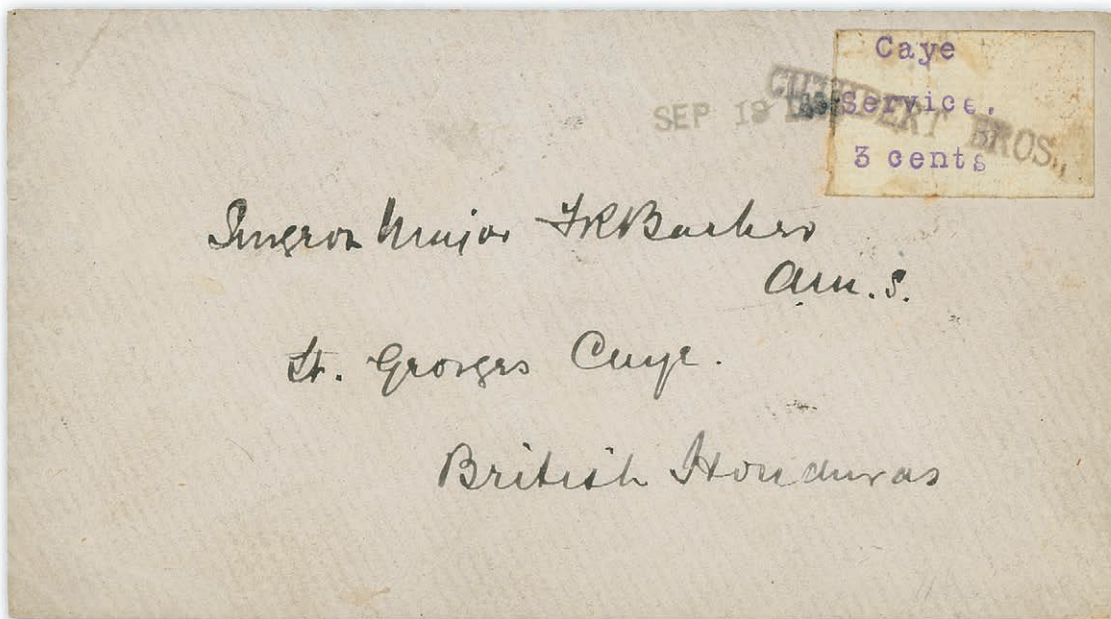 Caye
Service.
3 cents
CUTHBERT BROS.,
SEP 19
Surgeon Major FR Barker
A.M.S.
St. Georges Caye.
British Honduras